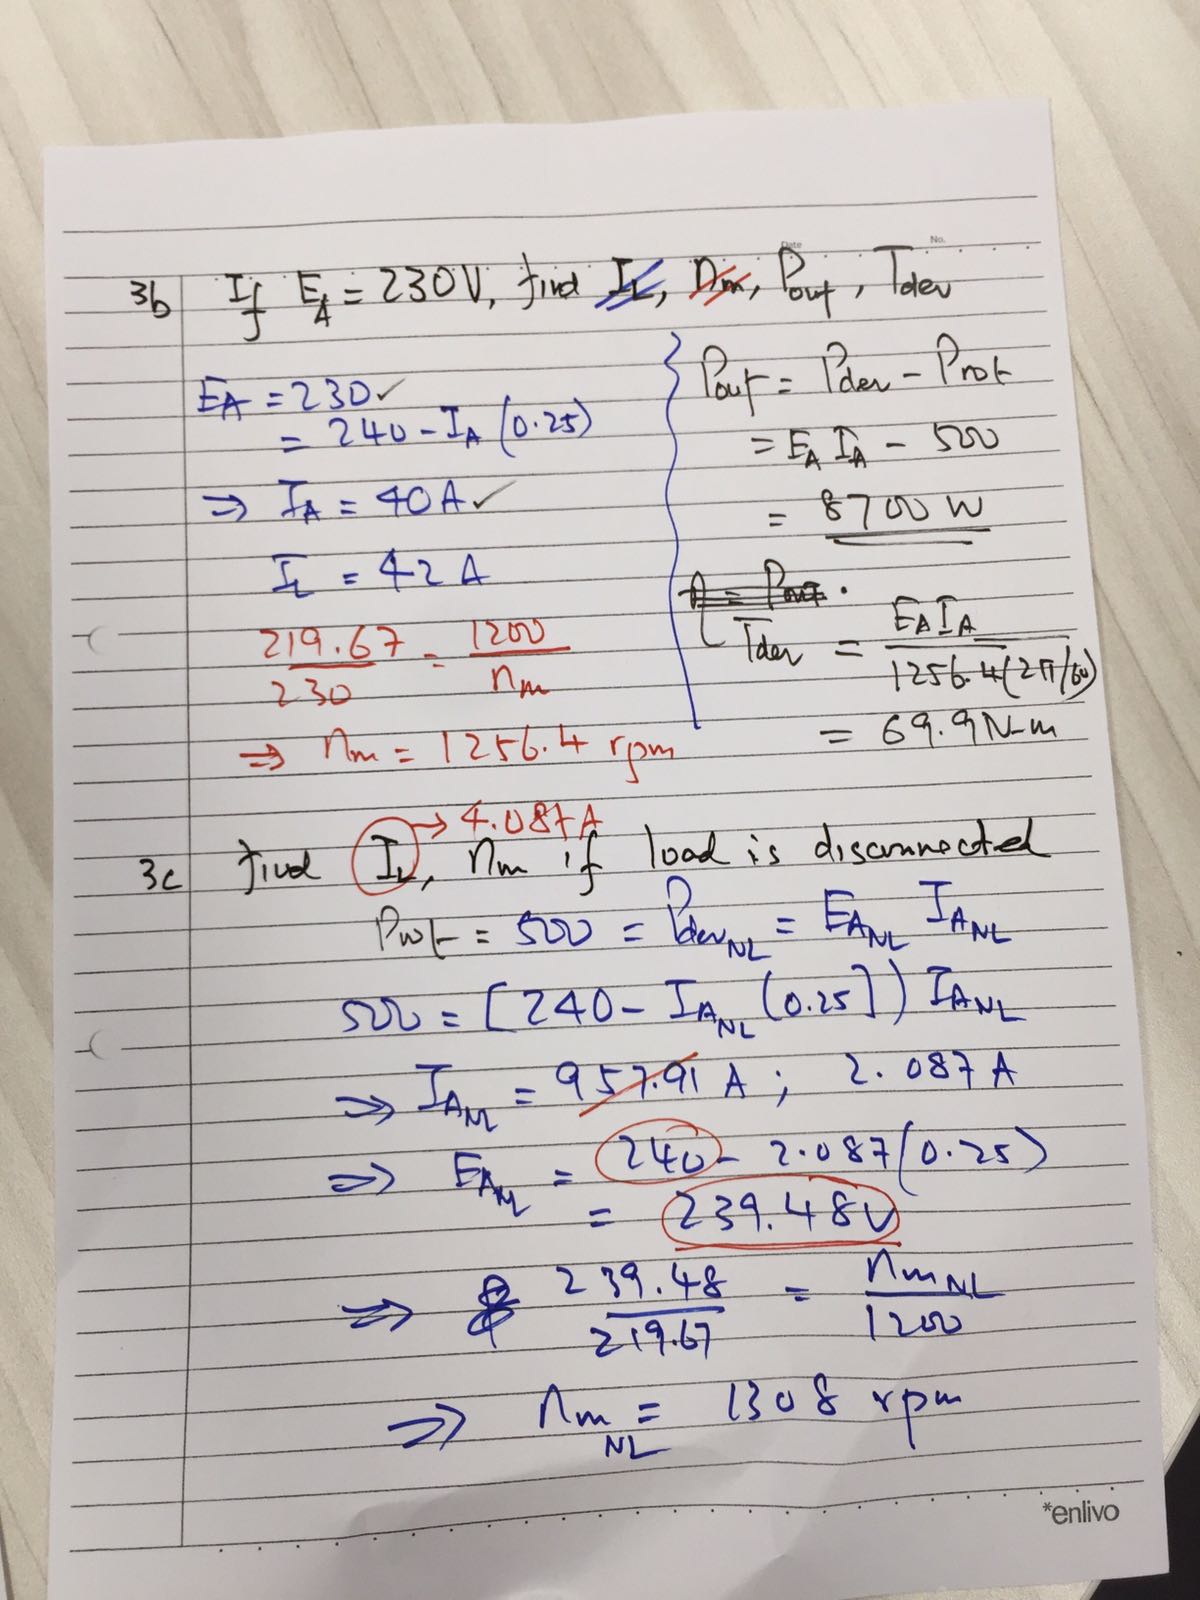 Date
No.
3b If E_A = 230V, find I_L, n_m, Pout, Tdev
E_A = 230 ✓
= 240 - I_A (0.25)
⇒ I_A = 40A ✓
I_L = 42A
219.67/230 = 1200/n_m
⇒ n_m = 1256.4 rpm
Pout = Pdev - Prot
= E_A I_A - 500
= 8700 W
Tdev = E_A I_A / 1256.4(2π/60)
= 69.9 N-m
→ 4.087A
3c find I_L, n_m if load is disconnected
Prot = 500 = Pdev_NL = E_A_NL I_A_NL
500 = [240 - I_A_NL (0.25]) I_A_NL
⇒ I_A_NL = 957.91 A ; 2.087 A
⇒ E_A_NL = 240 - 2.087(0.25)
= 239.48V
⇒ 239.48/219.67 = n_m_NL/1200
⇒ n_m_NL = 1308 rpm
*enlivo